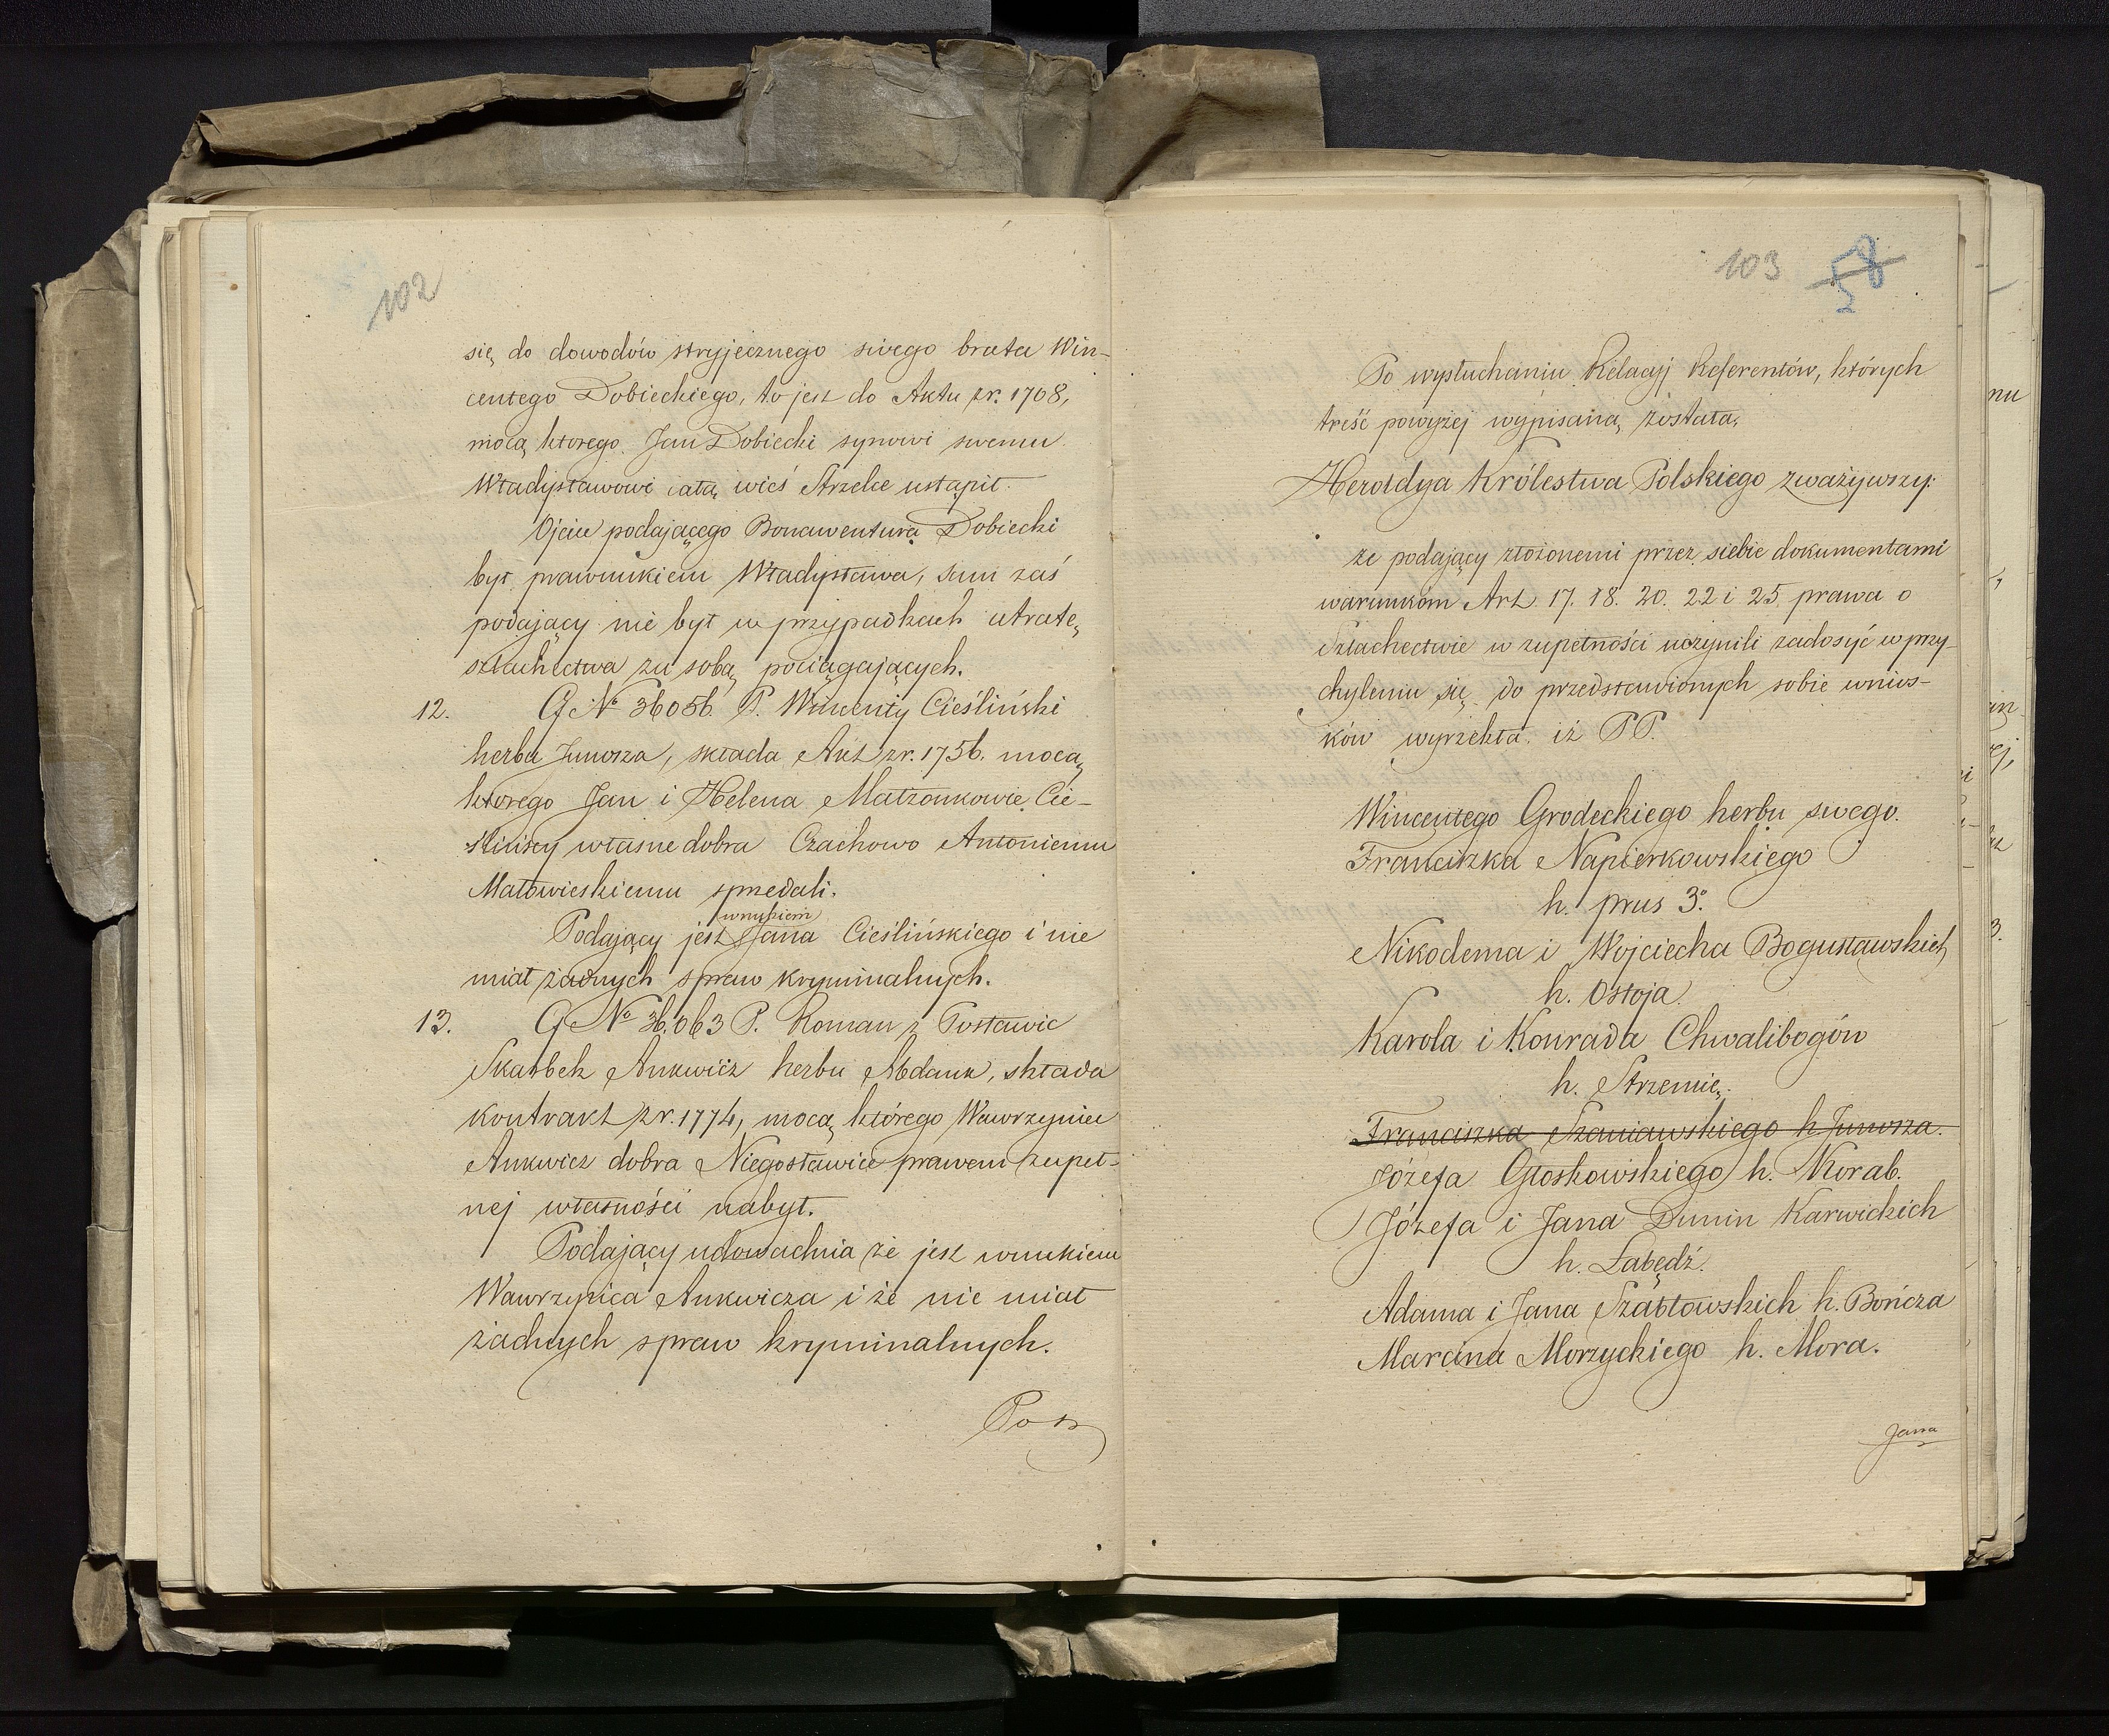 102
się do dowodów stryjecznego swego brata Win-
centego Dobieckiego, to jest do Aktu zr. 1708,
mocą ktorego Jan Dobiecki synowi swemu
Władysławowi całą wieś Strzelce ustąpił.
Ojciec podającego Bonawentura Dobiecki
był prawnukiem Władysława, sam zaś
podający nie był w przypadkach utratę
szlachectwa za sobą pociągających.
12. G № 36056. P. Wincenty Cieśliński
herbu Junosza, składa Akt zr. 1756. mocą
ktorego Jan i Helena Małżonkowie Cie-
ślińscy własne dobra Czachowo Antoniemu
Małowieskiemu sprzedali.
wnukiem
Podający jest Jana Cieślińskiego i nie
miał żadnych spraw kryminalnych.
13. G № 36.063 P. Roman z Posławic
Skarbek Ankwicz herbu Abdank, składa
kontrakt zr. 1774, mocą którego Wawrzyniec
Ankwicz dobra Niegosławice prawem zupeł-
nej własności nabył.
Podający udowadnia że jest wnukiem
Wawrzyńca Ankwicza i że nie miał
żadnych spraw kryminalnych.
Po
103 58
Po wysłuchaniu Relacyj Referentów, których
treść powyżej wypisaną została,
Heroldya Królestwa Polskiego zważywszy:
że podający złożonemi przez siebie dokumentami
warunkom Art. 17. 18. 20. 22 i 25 prawa o
Szlachectwie w zupełności uczynili zadosyć w przy-
chyleniu się do przedstawionych sobie wnios-
ków wyrzekła iż PP.
Wincentego Grodeckiego herbu swego.
Franciszka Napierkowskiego
h. prus 3°.
Nikodema i Wojciecha Bogusławskich
h. Ostoja.
Karola i Konrada Chwalibogów
h. Strzemię.
Franciszka Szaniawskiego h Junosza.
Józefa Głoskowskiego h. Korab.
Józefa i Jana Dunin Karwickich
h. Łabędź.
Adama i Jana Szabłowskich h. Bończa
Marcina Morzyckiego h. Mora.
Jana